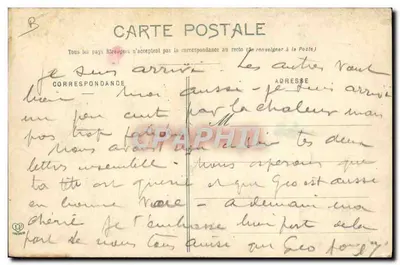 B
CARTE POSTALE
Tous les pays étrangers n'acceptent pas la correspondance au recto (Se renseigner à la Poste)
CORRESPONDANCE
ADRESSE
Je suis arrivé. Les autres vont
bien moi aussi - je suis arrivé
un peu cuit par la chaleur mais
pas trop
M
CPAPHIL
Nous avons tes deux
lettres ensemble - Nous espérons que
ta est guérie et que Geo est aussi
en bonne - a demain ma
chérie je t'embrasse bien fort de la
part de nous tous ainsi que Geo